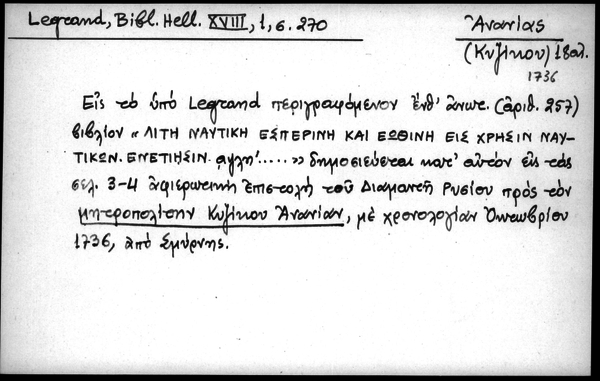 Legrand, Bibl. Hell. XVIII, 1, σ. 270
Ἀνανίας
(Κυζίκου) 18 αἰ.
1736
Εἰς τὸ ὑπό Legrand περιγραφόμενον ἔνθ' ἀνωτ. (ἀριθ. 257)
βιβλίον « ΛΙΤΗ ΝΑΥΤΙΚΗ ΕΣΠΕΡΙΝΗ ΚΑΙ ΕΩΘΙΝΗ ΕΙΣ ΧΡΗΣΙΝ ΝΑΥ-
ΤΙΚΩΝ. ΕΝΕΤΙΗΣΙΝ. αψλη'..... » δημοσιεύεται κατ' αὐτόν εἰς τάς
σελ. 3-4 ἀφιερωτική ἐπιστολή τοῦ Διαμαντῆ Ρυσίου πρός τόν
μητροπολίτην Κυζίκου Ἀνανίαν, μέ χρονολογίαν Ὀκτωβρίου
1736, ἀπό Σμύρνης.